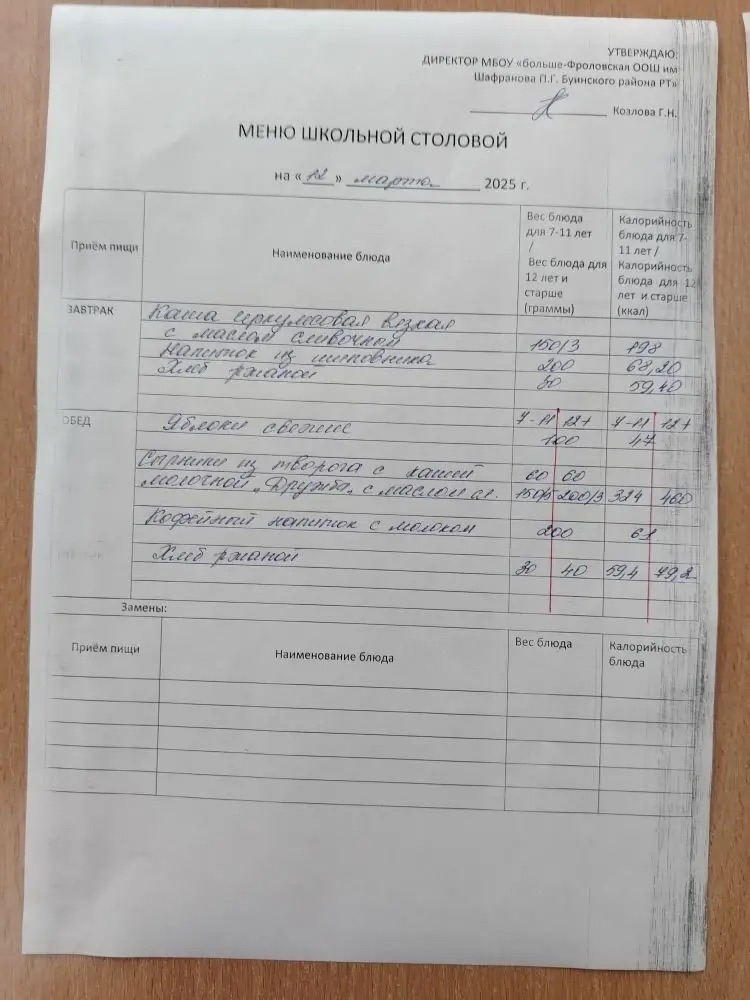 УТВЕРЖДАЮ:
ДИРЕКТОР МБОУ «Больше-Фроловская ООШ им
Шафранова П.Г. Буинского района РТ»
Козлова Г.Н.
МЕНЮ ШКОЛЬНОЙ СТОЛОВОЙ
на «12» марта 2025 г.
Приём пищи
Наименование блюда
Вес блюда
для 7-11 лет
/
Вес блюда для
12 лет и
старше
(граммы)
Калорийность
блюда для 7-
11 лет /
Калорийность
блюда для 12
лет и старше
(ккал)
ЗАВТРАК
Каша геркулесовая вязкая
с маслом сливочной 150/3 198
Напиток из шиповника 200 68,20
Хлеб ржаной 30 59,40
ОБЕД
7-11 12+ 7-11 12+
Яблоки свежие 100 47
Сырники из творога с кашей 60 60
молочной „Дружба„ с маслом сл. 150/5 200/3 324 460
Кофейный напиток с молоком 200 61
Хлеб ржаной 30 40 59,4 79,2
Замены:
Приём пищи
Наименование блюда
Вес блюда
Калорийность
блюда